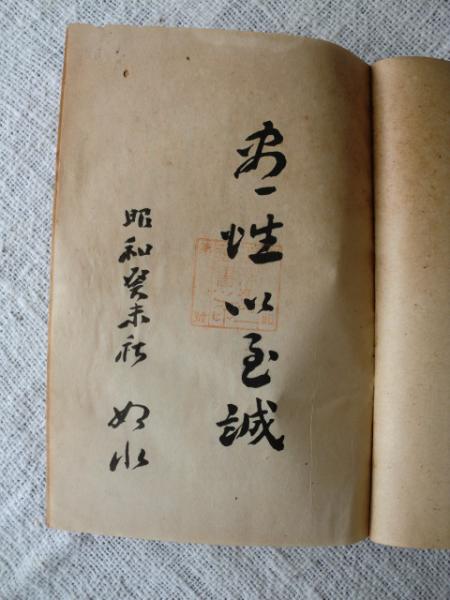 盡性以至誠
昭和癸未秋 如水